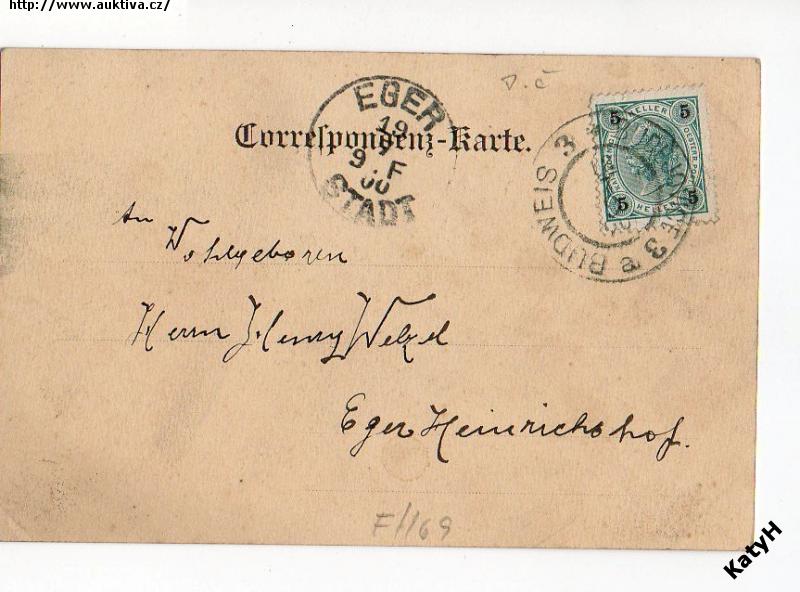 http://www.auktiva.cz/
Correspondenz-Karte.
EGER
19
7
9.F
00
STADT
3 BUDWEIS 3
5 HELLER 5
5 HELLER 5
An
Wohlgeboren
Herrn Henry Welzel
Eger Heinrichshof.
F/169
KatyH